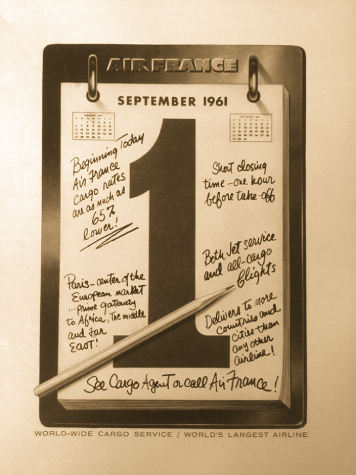 AIR FRANCE
SEPTEMBER 1961
Beginning Today
Air France
Cargo rates
are as much as
65%
lower!
Short closing
time-one hour
before take-off
1
Both Jet service
and all-cargo
flights
Paris-center of the
European market
...prime gateway
to Africa, The middle
and Far
East!
Delivers to more
countries and
cities-than
any other
airline!
See Cargo Agent or call Air France!
WORLD-WIDE CARGO SERVICE / WORLD'S LARGEST AIRLINE